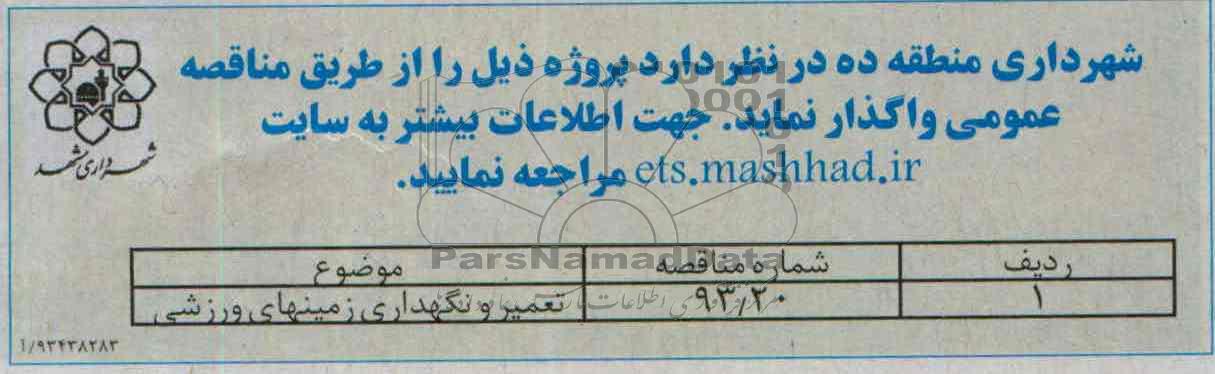 شهرداری منطقه ده در نظر دارد پروژه ذیل را از طریق مناقصه
عمومی واگذار نماید. جهت اطلاعات بیشتر به سایت
ets.mashhad.ir مراجعه نمایید.
شهرداری مشهد
ParsNamadData
ردیف شماره مناقصه موضوع
۱ ۹۳/۲۰ تعمیر و نگهداری زمینهای ورزشی
۱/۹۳۴۳۸۲۸۳